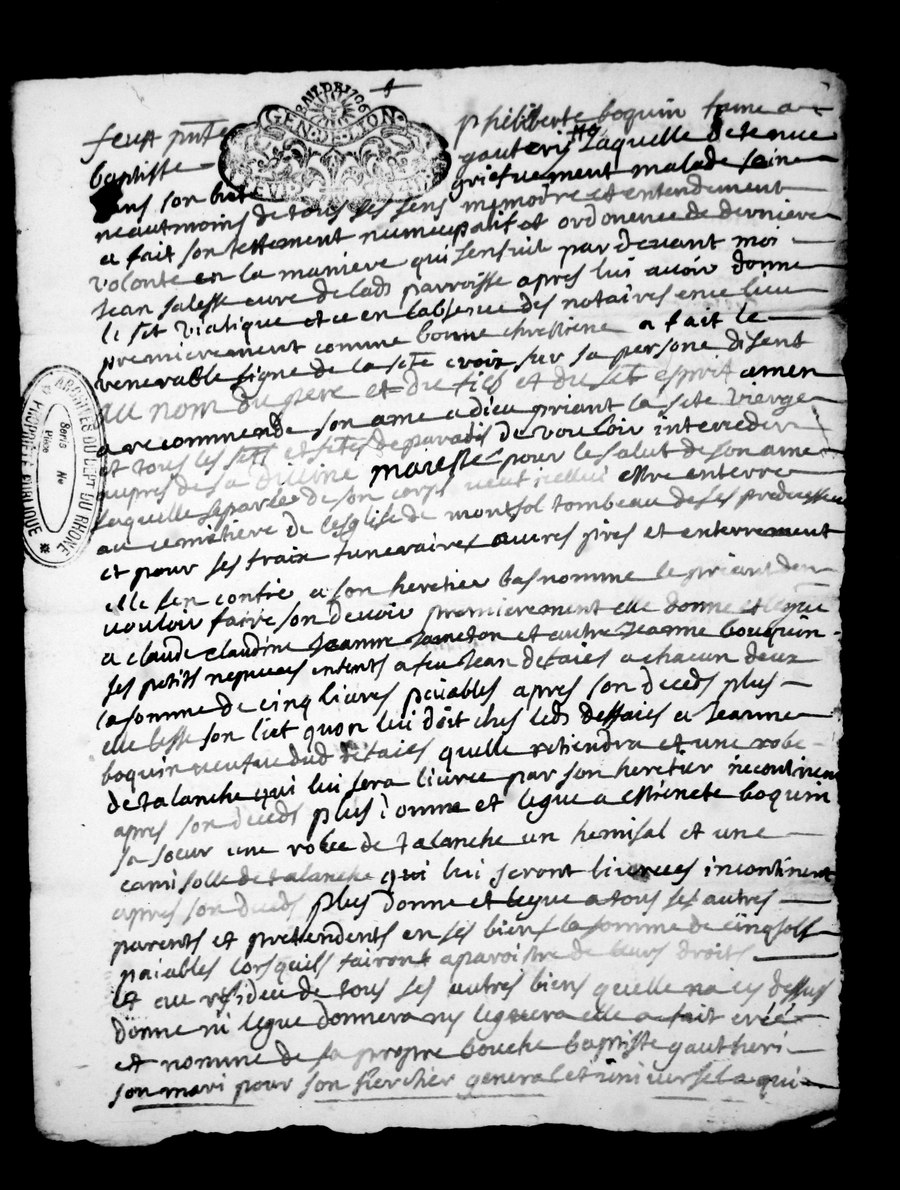 BAIL DE 1706
GEN. DE LYON
feut pnte philiberte boquin fame a
baptiste gauteri laquelle detenue
dans son lict griefvement malade seine
neautmoins de tous ses sens memoire et entendement
a fait son testtement numcupatif et ordonence de derniere
volonte en la maniere qui sensuit par devant moi
Jean salesse cure de lad parroisse apres lui avoir donne
le st viatique et ce en labsence des notaires en ce lieu
premierement comme bonne chrestiene a fait le
venerable signe de la ste croix sur sa persone disent
au nom du pere et du fils et du st esprit amen
a recommende son ame a dieu priant la ste vierge
et tous les sts et stes de paradis de vouloir interceder
aupres de sa divine majeste pour le salut de son ame
laquelle separee de son corps veut icellui estre enterre
au cemetiere de lesglise de montsol tombeau de ses predecesseurs
et pour ses fraix funeraires œuvres pies et enterrement
elle sen confie a son heretier bas nomme le priant den
vouloir faire son devoir premierement elle donne et legue
a claude claudine Jeanne et autre Jeanne bouquin
ses petits nepveus enfents a feu Jean detaies a chacun deux
la somme de cinq livres paiables apres son deceds plus
elle lesse son liet quon lui doit ches leds dessaies a Jeanne
boquin veufve dud detaies quelle retiendra et une robe
de talanche qui lui sera livree par son heretier incontinent
apres son deceds plus donne et legue a estienete boquin
sa soeur une robee de talanche un et une
camisolle de talanche qui lui seront livrees incontinent
apres son deceds plus donne et legue a tous ses autres
parents et pretendents en ses biens la somme de cinq sols
paiables lorsquils fairont aparoistre de leurs droits
Et au resideu de tous ses autres biens quelle na cy dessus
donne ni legue donnera ny leguera elle a fait créé
et nomme de sa propre bouche baptiste gautheri
son mari pour son heretier general et universel a qui
ARCHIVES DU DEPT DU RHONE
PROPRIETE PUBLIQUE
Série No
Pièce